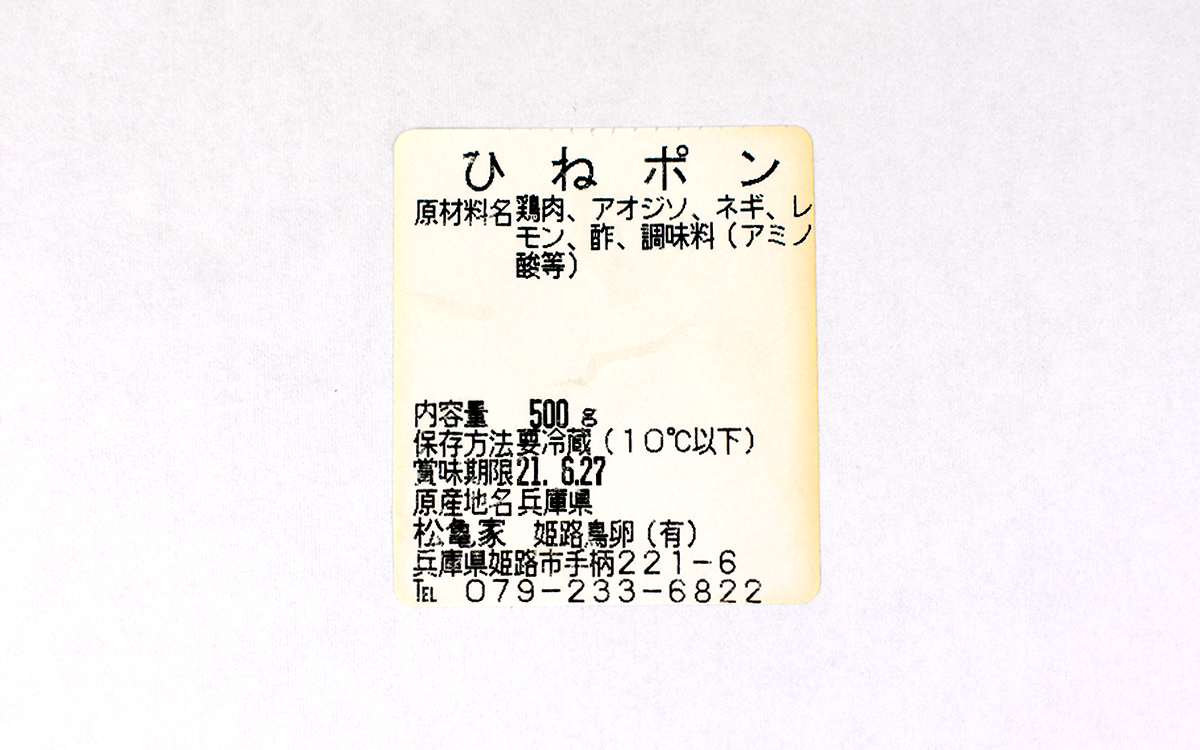 ひねポン
原材料名 鶏肉、アオジソ、ネギ、レ
モン、酢、調味料（アミノ
酸等）
内容量 500g
保存方法 要冷蔵（10℃以下）
賞味期限 21. 6.27
原産地名 兵庫県
松亀家 姫路鳥卵（有）
兵庫県姫路市手柄221-6
TEL 079-233-6822